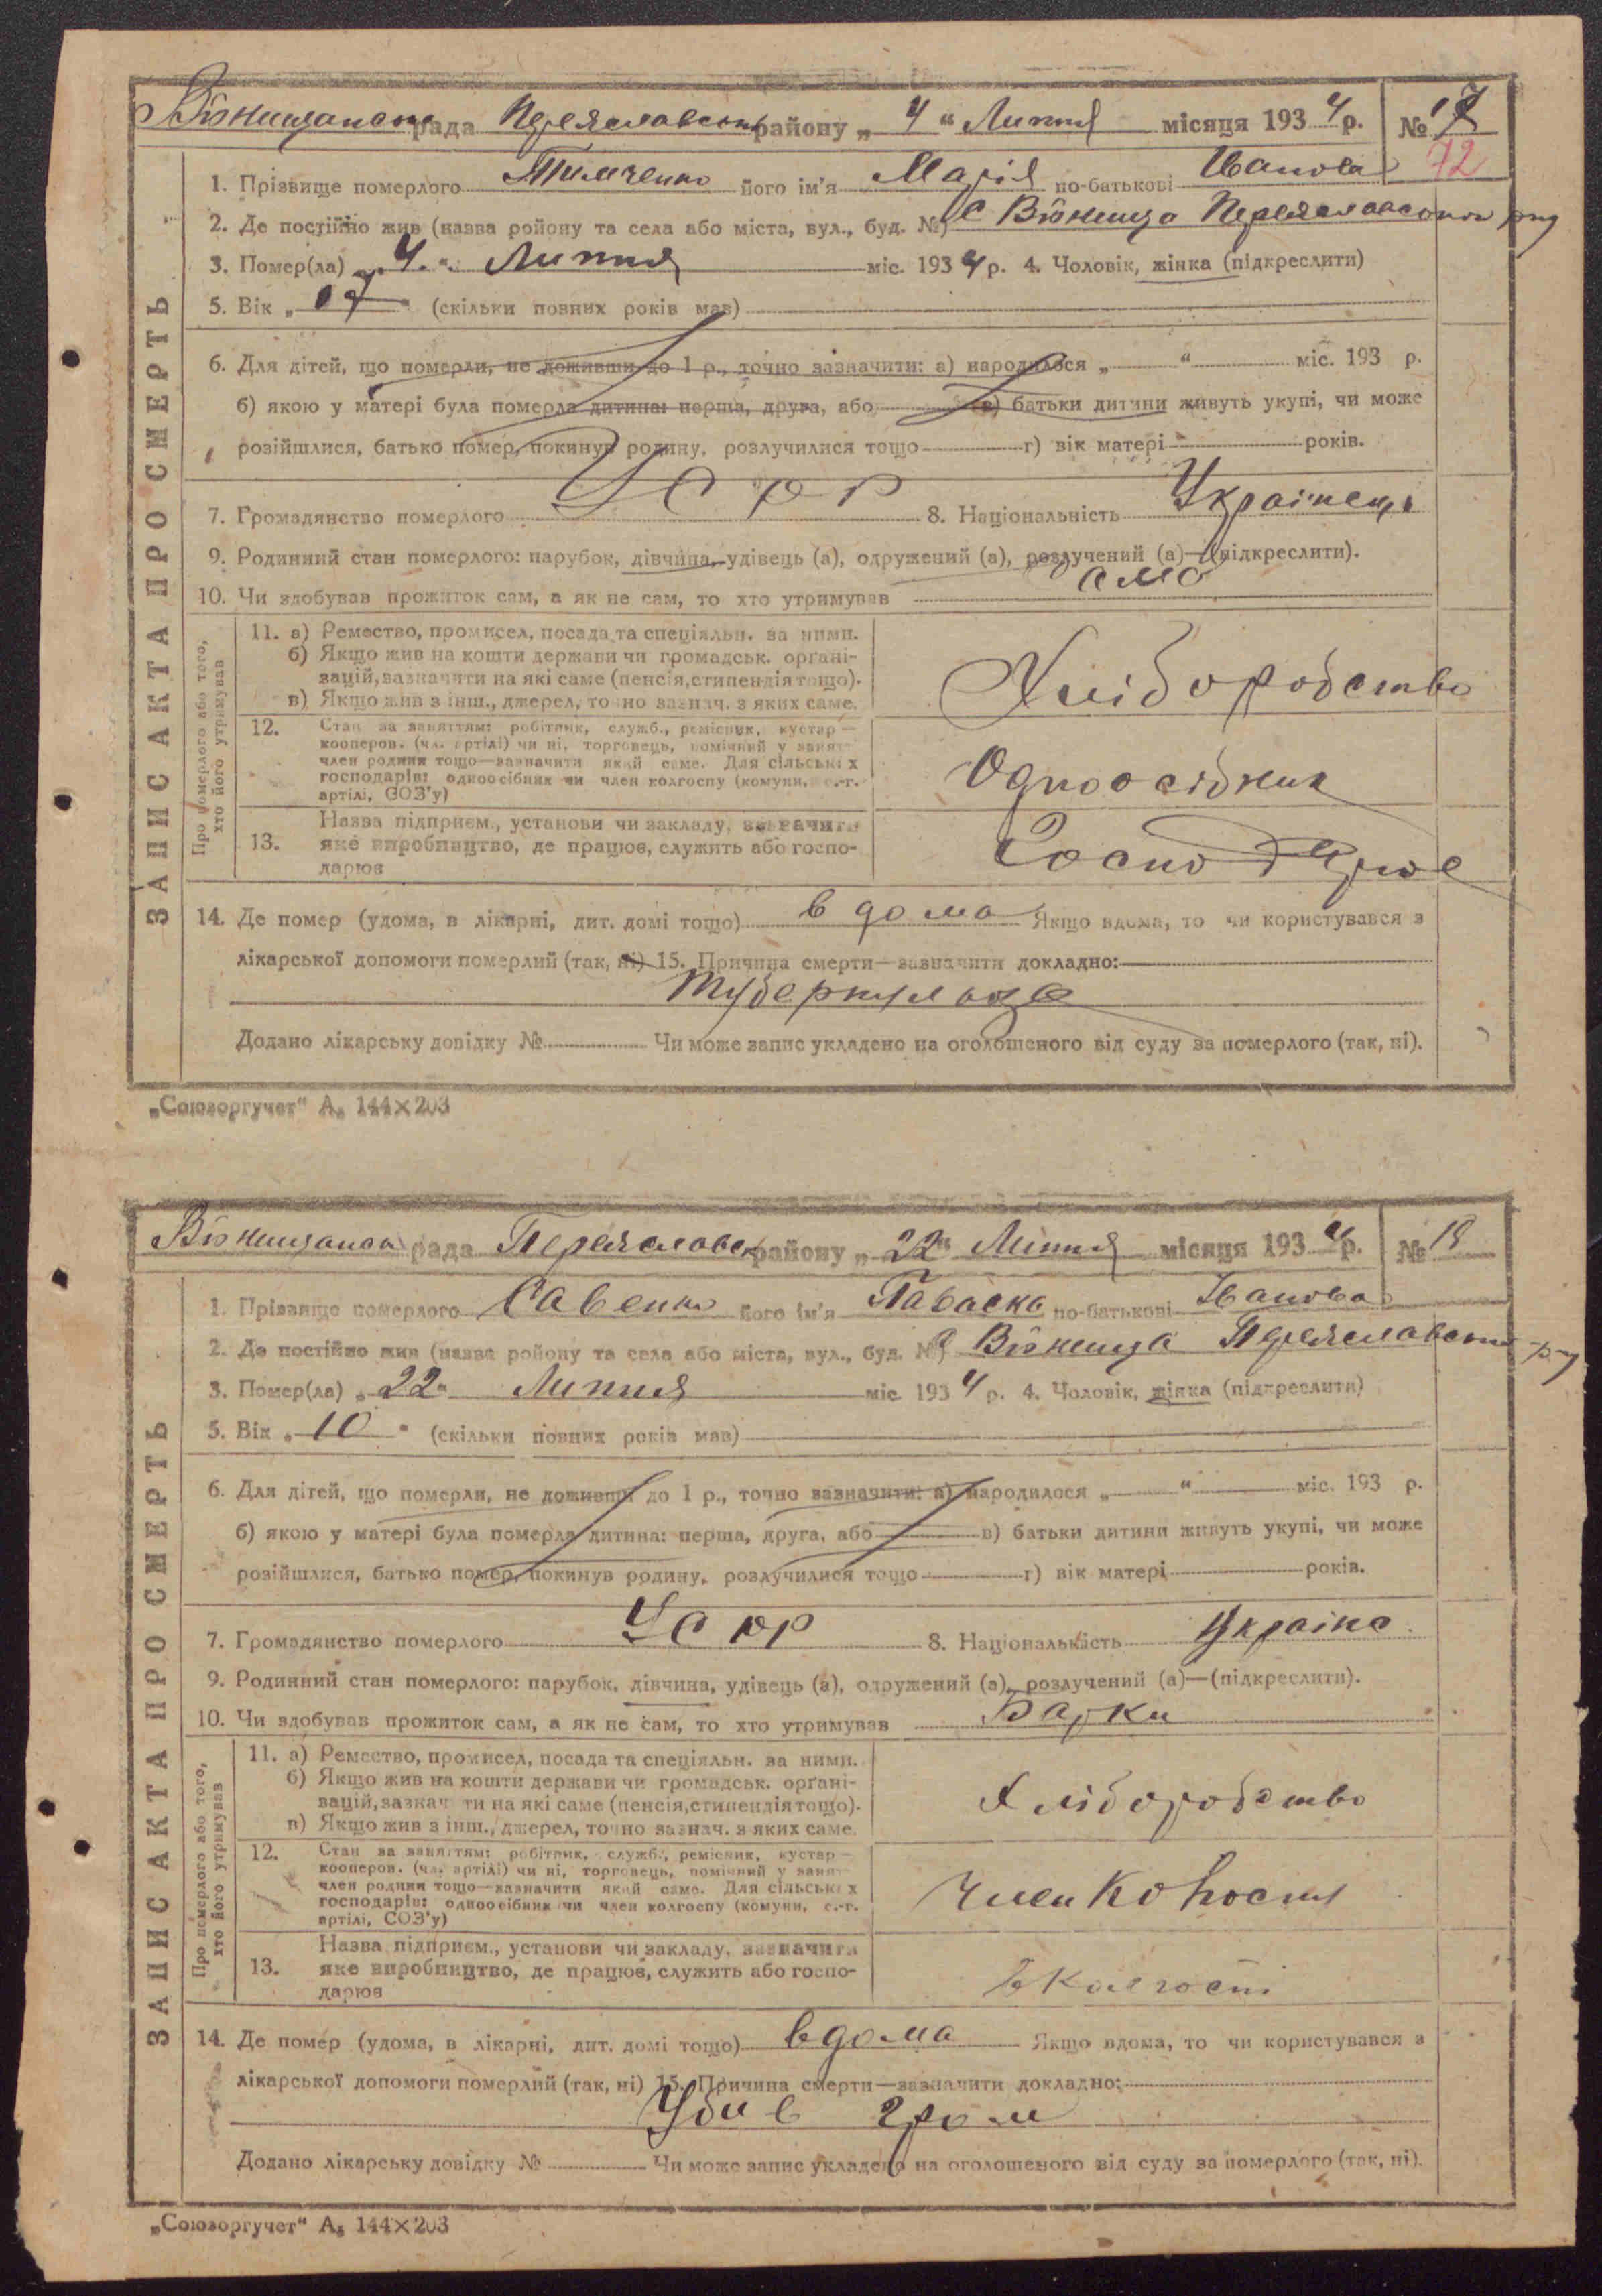 Вюнищанська рада Переяславськ району „ 4 “ Липня місяця 1934 р. № 17
72
1. Прізвище померлого Тимченко його ім'я Марія по-батькові Іванова
2. Де постійно жив (назва ройону та села або міста, вул., буд. №) с Вюнища Переяславського р-ну
3. Помер(ла) „ 4 “ Липня міс. 1934 р. 4. Чоловік, жінка (підкреслити)
5. Вік „ “ (скільки повних років мав)
6. Для дітей, що померли, не доживши до 1 р., точно зазначити: а) народилося „ “ міс. 193 р.
б) якою у матері була померла дитина: перша, друга, або в) батьки дитини живуть укупі, чи може
розійшлися, батько помер, покинув родину, розлучилися тощо г) вік матері років.
7. Громадянство померлого УСРР 8. Національність Українець
9. Родинний стан померлого: парубок, дівчина, удівець (а), одружений (а), розлучений (а)—(підкреслити).
10. Чи здобував прожиток сам, а як не сам, то хто утримував сама
ЗАПИС АКТА ПРО СМЕРТЬ
Про померлого або того,
хто його утримував
11. а) Ремество, промисел, посада та спеціяльн. за ними.
б) Якщо жив на кошти держави чи громадськ. органі-
зацій, зазначити на які саме (пенсія, стипендія тощо).
в) Якщо жив з інш., джерел, точно зазнач. з яких саме.
Хліборобство
12. Стан за заняттям: робітник, служб., ремісник, кустар —
кооперов. (чл. артілі) чи ні, торговець, помічний у занят-
член родини тощо—зазначити який саме. Для сільських
господарів: одноосібник чи член колгоспу (комуни, с.-г.
артілі, СОЗ'у)
Одноосібник
13. Назва підприєм., установи чи закладу, зазначити
яке виробництво, де працює, служить або госпо-
дарює
Господарює
14. Де помер (удома, в лікарні, дит. домі тощо) вдома Якщо вдома, то чи користувався з
лікарської допомоги померлий (так, ні) 15. Причина смерти—зазначити докладно:
Туберкульоза
Додано лікарську довідку № Чи може запис укладено на оголошеного від суду за померлого (так, ні).
„Союзоргучет“ А₅ 144×203
Вюнищанськ рада Переяславськ району „ 22 “ Липня місяця 1934 р. № 18
1. Прізвище померлого Савенко його ім'я Параска по-батькові Іванова
2. Де постійно жив (назва ройону та села або міста, вул., буд. №) с Вюнища Переяславськ р-ну
3. Помер(ла) „ 22 “ Липня міс. 1934 р. 4. Чоловік, жінка (підкреслити)
5. Вік „ 10 “ (скільки повних років мав)
6. Для дітей, що померли, не доживши до 1 р., точно зазначити: а) народилося „ “ міс. 193 р.
б) якою у матері була померла дитина: перша, друга, або в) батьки дитини живуть укупі, чи може
розійшлися, батько помер, покинув родину, розлучилися тощо г) вік матері років.
7. Громадянство померлого УСРР 8. Національність Україне
9. Родинний стан померлого: парубок, дівчина, удівець (а), одружений (а), розлучений (а)—(підкреслити).
10. Чи здобував прожиток сам, а як не сам, то хто утримував Батки
ЗАПИС АКТА ПРО СМЕРТЬ
Про померлого або того,
хто його утримував
11. а) Ремество, промисел, посада та спеціяльн. за ними.
б) Якщо жив на кошти держави чи громадськ. органі-
зацій, зазначити на які саме (пенсія, стипендія тощо).
в) Якщо жив з інш., джерел, точно зазнач. з яких саме.
Хліборобство
12. Стан за заняттям: робітник, служб., ремісник, кустар —
кооперов. (чл. артілі) чи ні, торговець, помічний у занят-
член родини тощо—зазначити який саме. Для сільських
господарів: одноосібник чи член колгоспу (комуни, с.-г.
артілі, СОЗ'у)
Член
13. Назва підприєм., установи чи закладу, зазначити
яке виробництво, де працює, служить або госпо-
дарює
в колгоспі
14. Де помер (удома, в лікарні, дит. домі тощо) вдома Якщо вдома, то чи користувався з
лікарської допомоги померлий (так, ні) 15. Причина смерти—зазначити докладно:
Убив гром
Додано лікарську довідку № Чи може запис укладено на оголошеного від суду за померлого (так, ні).
„Союзоргучет“ А₅ 144×203